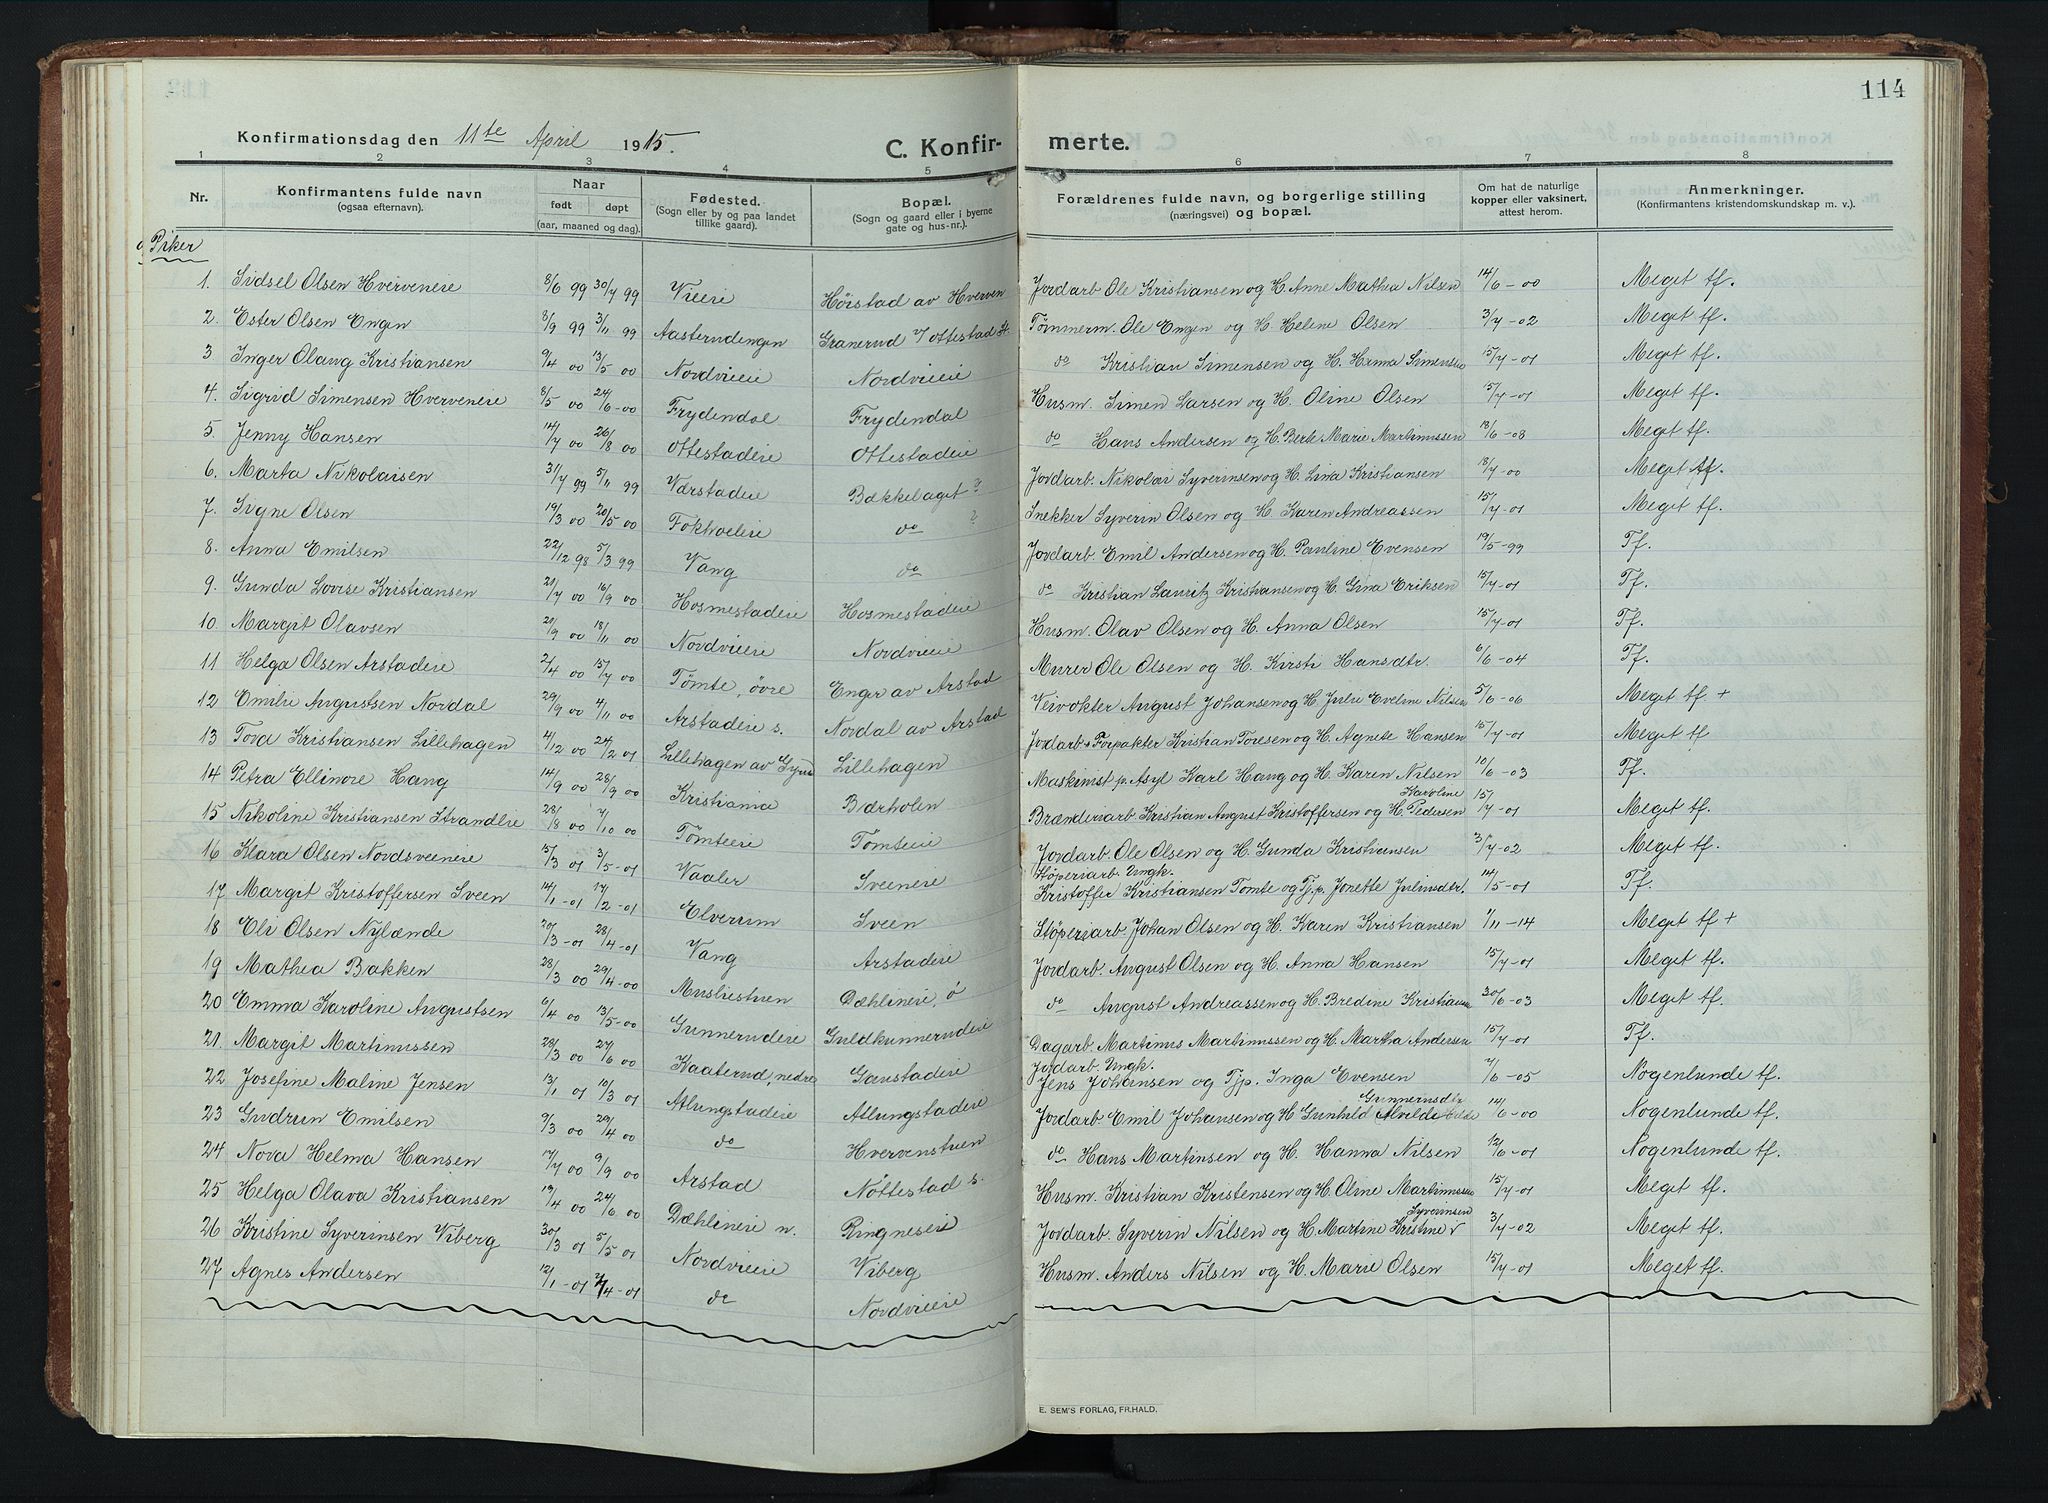 114
Konfirmationsdag den 11te April 1915.
C. Konfir-
merte.
1 2 3 4 5 6 7 8
Nr. Konfirmantens fulde navn (ogsaa efternavn). Naar født døpt (aar, maaned og dag). Fødested. (Sogn eller by og paa landet tillike gaard). Bopæl. (Sogn og gaard eller i byerne gate og hus-nr.). Forældrenes fulde navn, og borgerlige stilling (næringsvei) og bopæl. Om hat de naturlige kopper eller vaksinert, attest herom. Anmerkninger. (Konfirmantens kristendomskundskap m. v.).
Piker
1. Sidsel Olsen Hverveneie 8/6 99 30/7 99 Vieeie Höistad av Hverven Jordarb. Ole Kristiansen og H. Anne Mathea Nilsen 14/6-00 Meget tf.
2. Ester Olsen Engen 8/9 99 3/11 99 Aasterudengen Granerud Ottestad Tømmerm. Ole Engen og H. Helene Olsen 3/7-02 Meget tf.
3 Inger Olaug Kristiansen 9/4 00 13/5 00 Nordvieeie Nordvieeie do Kristian Simensen og H. Hanna Simensen 15/7-01 Meget tf.
4. Sigrid Simensen Hverveneie 8/5 00 24/6-00 Frydendal Frydendal Husm. Simen Larsen og H. Oline Olsen 15/7-01 Meget tf.
5. Jenny Hansen 14/7 00 26/8 00 Ottestadeie Ottestadeie do Hans Andersen og H. Berte Marie Martinussen 18/6-08 Meget tf.
6. Marta Nikolaisen 31/7 99 5/11 99 Vørstadeie Bækkelaget ? Jordarb. Nikolai Syverinsen og H. Lina Kristiansen 18/7-00 Meget tf.
7. Signe Olsen 19/3 00 20/5 00 Fokholeie do ? Snekker Syverin Olsen og H. Karen Andreassen 15/7-01 Meget tf.
8. Anna Emilsen 22/12 98 5/3 99 Vang do Jordarb. Emil Andersen og H. Pauline Evensen 19/5-99 Tf.
9. Gunda Lovise Kristiansen 21/7 00 16/9 00 Hosmestadeie Hosmestadeie do Kristian Lauritz Kristiansen og H. Gina Eriksen 15/7-01 Tf.
10. Margit Olavsen 20/9 00 18/11 00 Nordvieeie Nordvieeie Husm. Olav Olsen og H. Anna Olsen 15/7-01 Tf.
11 Helga Olsen Arstadeie 2/4 00 15/7 00 Tömte, övre Enger av Arstad Murer Ole Olsen og H. Kirsti Hansdtr. 6/6-04 Tf.
12 Emilie Augustsen Nordal 29/9 00 4/11 00 Arstadeie s. Nordal av Arstad Veivokter August Johansen og H. Julie Eveline Nilsen 5/6-06 Meget tf +
13 Tova Kristiansen Lillehagen 4/12 00 24/2 01 Lillehagen av Lillehagen Jordarb. + Forpakter Kristian Toresen og H. Agnete Hansen 15/7-01 Meget tf
14 Petra Ellinore Haug 14/9 00 28/9 00 Kristiania Bærholen Maskinist p. Asyl Karl Haug og H. Karen Nilsen 10/6-03 Tf.
15 Nikoline Kristiansen Strandlie 28/8 00 7/10 00 Tömteeie Tomteeie Brænderiarb. Kristian August Kristoffersen og H. Karoline Pedersen 15/7-01 Meget tf.
16 Klara Olsen Nordsveeneie 15/3 01 3/5-01 Vaaler Sveeneie Jordarb. Ole Olsen og H. Gunda Kristiansen 3/7-02 Meget tf.
17 Margit Kristoffersen Sveen 14/1-01 17/2-01 Elverum Sveen Støperiarb. Ungk. Kristoffer Kristiansen Tomte og Tj.p. Jonette Juliusdtr. 14/5-01 Tf.
18 Eli Olsen Nylænde 20/3-01 28/4-01 Vang Arstadeie Støperiarb. Johan Olsen og H. Karen Kristiansen 7/11-14 Meget tf +
19 Mathea Bakken 28/3 00 29/4-00 Musliestuen Dæhlineie, ö Jordarb. August Olsen og H. Anna Hansen 15/7-01 Meget tf.
20 Emma Karoline Augustsen 6/4 00 13/5-00 Gunnerudeie Guldkunnerudeie do August Andreassen og H. Bredine Kristiansen 30/6-03 Meget tf.
21. Margit Martinussen 28/3 00 27/6 00 Kaaterud, nedre Gaustadeie Dagarb. Martinus Martinussen og H. Martha Andersen 15/7-01 Tf.
22 Josefine Maline Jensen 13/1 01 10/3 01 Atlungstadeie Atlungstadeie Jordarb. Ungk. Jens Johansen og Tjp. Inga Evensen 7/6-05 Nogenlunde tf.
23 Gudrun Emilsen 9/3 00 29/4 00 do Hvervenstuen Jordarb. Emil Johansen og H. Gunhild Alvilde 14/6-00 Nogenlunde tf.
24 Nova Helma Hansen 17/7 00 9/9 00 Arstad Nöttestad s. do Hans Martinsen og H. Hanna Nilsen 12/6-01 Nogenlunde tf.
25 Helga Olava Kristiansen 13/4 00 24/6 00 Dæhlineie n. Ringneseie Husm. Kristian Kristensen og H. Oline Martinussen 15/7-01 Meget tf.
26 Kristine Syverinsen Viberg 30/3 01 5/5 01 Nordvieeie Viberg Jordarb. Syverin Nilsen og H. Martine Kristine Syverinsen 3/7-02 Meget tf.
27 Agnes Andersen 12/1-01 /4-01 do Nordvieeie Husm. Anders Nilsen og H. Marie Olsen 15/7-01 Meget tf.
E. SEM'S FORLAG, FR.HALD.